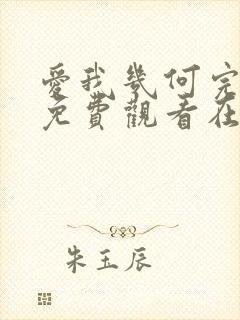 愛我幾何完
免費觀看在
朱玉辰